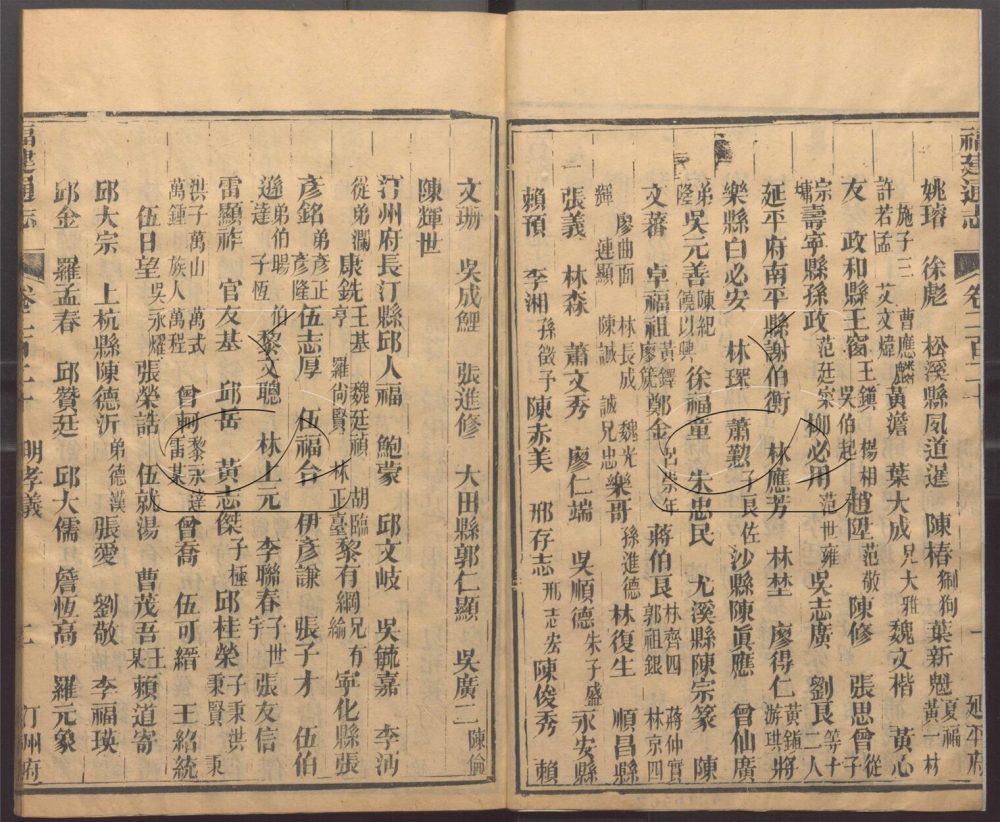 福建通志 卷二百二十 一 延平府
姚璿 徐彪 松溪縣夙道暹 陳椿 獅狗 葉新魁 夏福 黃一材
施子三 曹應麟 許若孟 艾文煒 黃澹 葉大成 兄大雅 魏文楷 黃心
友 政和縣王窗 王鎮 楊相 吳伯起 趙陞 范敬 陳修 張思曾 從子
宗墉 壽寧縣孫政 范廷寀 柳必用 范世雍 吳志廣 劉艮 等十二人
延平府南平縣謝伯衡 林應芳 林埜 廖得仁 黃鎮 游珙 將
樂縣白必安 林琛 蕭懃 子良佐 沙縣陳眞應 曾仙廣
弟隆 吳元善 陳紀 饒以興 徐福童 朱忠民 尤溪縣陳宗篆 陳
文蕃 卓福祖 黃鐸 鄭金 呂崇年 蔣伯良 林齊四 蔣仲實 郭祖銀 林京四
廖曲面 林長成 魏光 輝 連顯 陳誠 誠兄忠 樂哥 孫進德 林復生 順昌縣
張義 林森 蕭文秀 廖仁端 吳順德 朱子盛 永安縣
賴預 李湘 孫徵子 陳赤美 邢存志 邢志宏 陳俊秀 賴
文珊 吳成鯉 張進修 大田縣郭仁顯 吳廣二 陳倫
陳輝世
汀州府長汀縣邱人福 鮑蒙 邱文岐 吳毓嘉 李沔
從弟瀾 康銑 王基 魏廷禎 胡臨 亨 羅尚賢 林正臺 黎有綱 兄有綸 寧化縣張
彥銘 弟彥正 彥隆 伍志厚 伍福台 伊彥謙 張子才 伍伯
遜達 弟伯暘 子恆 伯 黎文聰 林上元 李聯春 子世宇 張友信
雷顯祚 官友基 邱岳 黃志傑 子極 邱桂榮 子秉洪 秉賢 秉
洪子萬山 萬式 萬鍾 族人萬程 曾軻 黎永達 雷某 曾喬 伍可縉 王紹統
伍日望 吳永耀 張榮誥 伍就湯 曹茂吾 王某 賴道寄
邱大宗 上杭縣陳德沂 弟德漢 張愛 劉敬 李福瑛
邱金 羅孟春 邱贊廷 邱大儒 詹恆高 羅元象
福建通志 卷二百二十 明孝義 二 汀州府